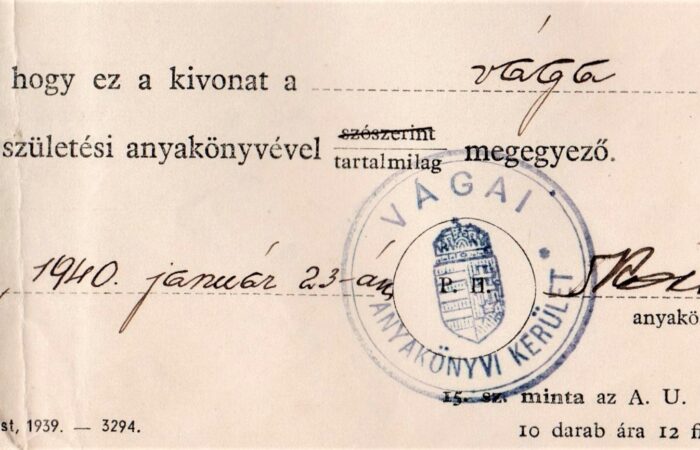 hogy ez a kivonat a vága
születési anyakönyvével szószerint
tartalmilag megegyező.
VÁGAI
1940. január 23-án P. H.
ANYAKÖNYVI KERÜLET
anyakö
15. sz. minta az A. U.
st, 1939. — 3294.
10 darab ára 12 fi